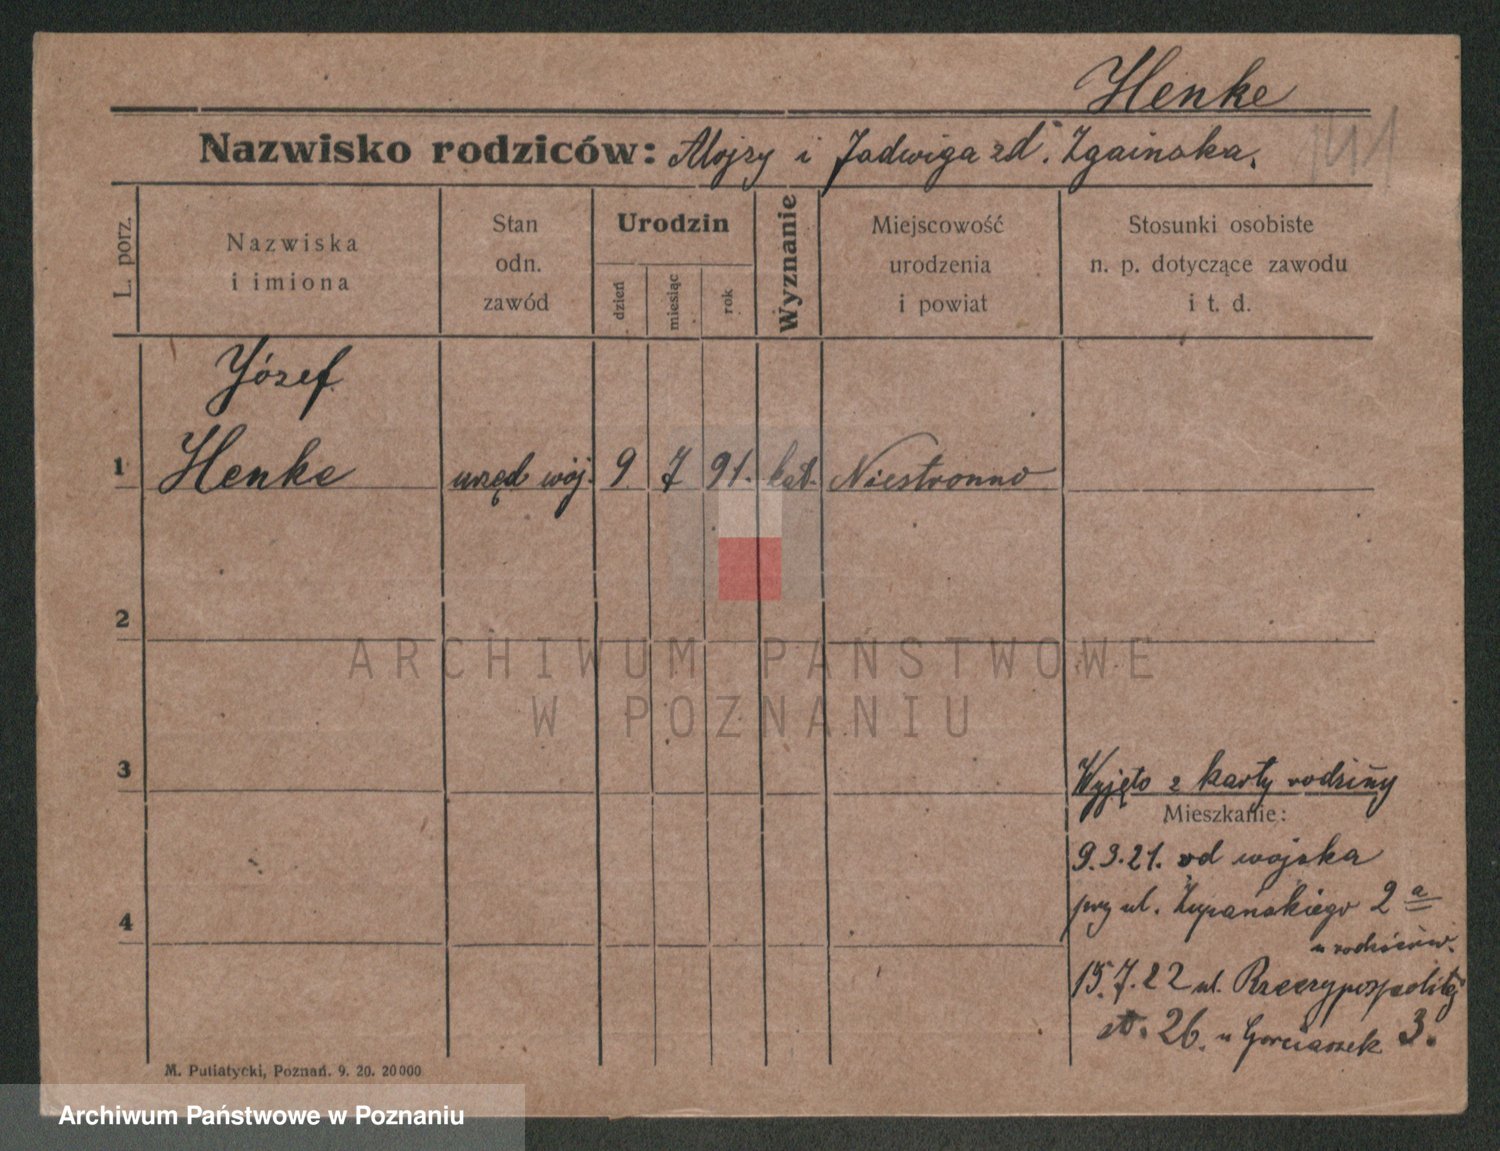 Henke
Nazwisko rodziców: Alojzy i Jadwiga zd. Zgainska.
141
L. porz.
Nazwiska
i imiona
Stan
odn.
zawód
Urodzin
dzień
miesiąc
rok
Wyznanie
Miejscowość
urodzenia
i powiat
Stosunki osobiste
n. p. dotyczące zawodu
i t. d.
Józef
1 Henke urzęd woj. 9 7 91. kat. Niestronno
2
ARCHIWUM PAŃSTWOWE
W POZNANIU
3
Wyjęto z karty rodziny
Mieszkanie:
9.3.21. od wojska
przy ul. Żupańskiego 2 a
4
u rodziców.
15.7.22 ul. Rzeczypospolitej
26. u 3.
M. Putiatycki, Poznań. 9. 20. 20000
Archiwum Państwowe w Poznaniu